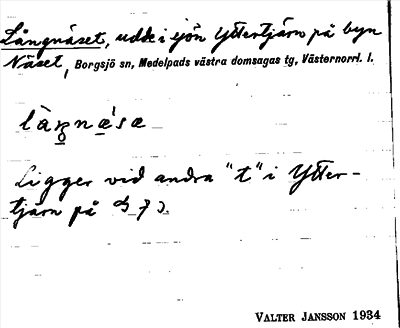 Långnäset, udde i sjön Yttertjärn på byn
Näset, Borgsjö sn, Medelpads västra domsagas tg, Västernorrl. l.
Ligger vid andra "t" i Ytter-
tjärn på
VALTER JANSSON 1934